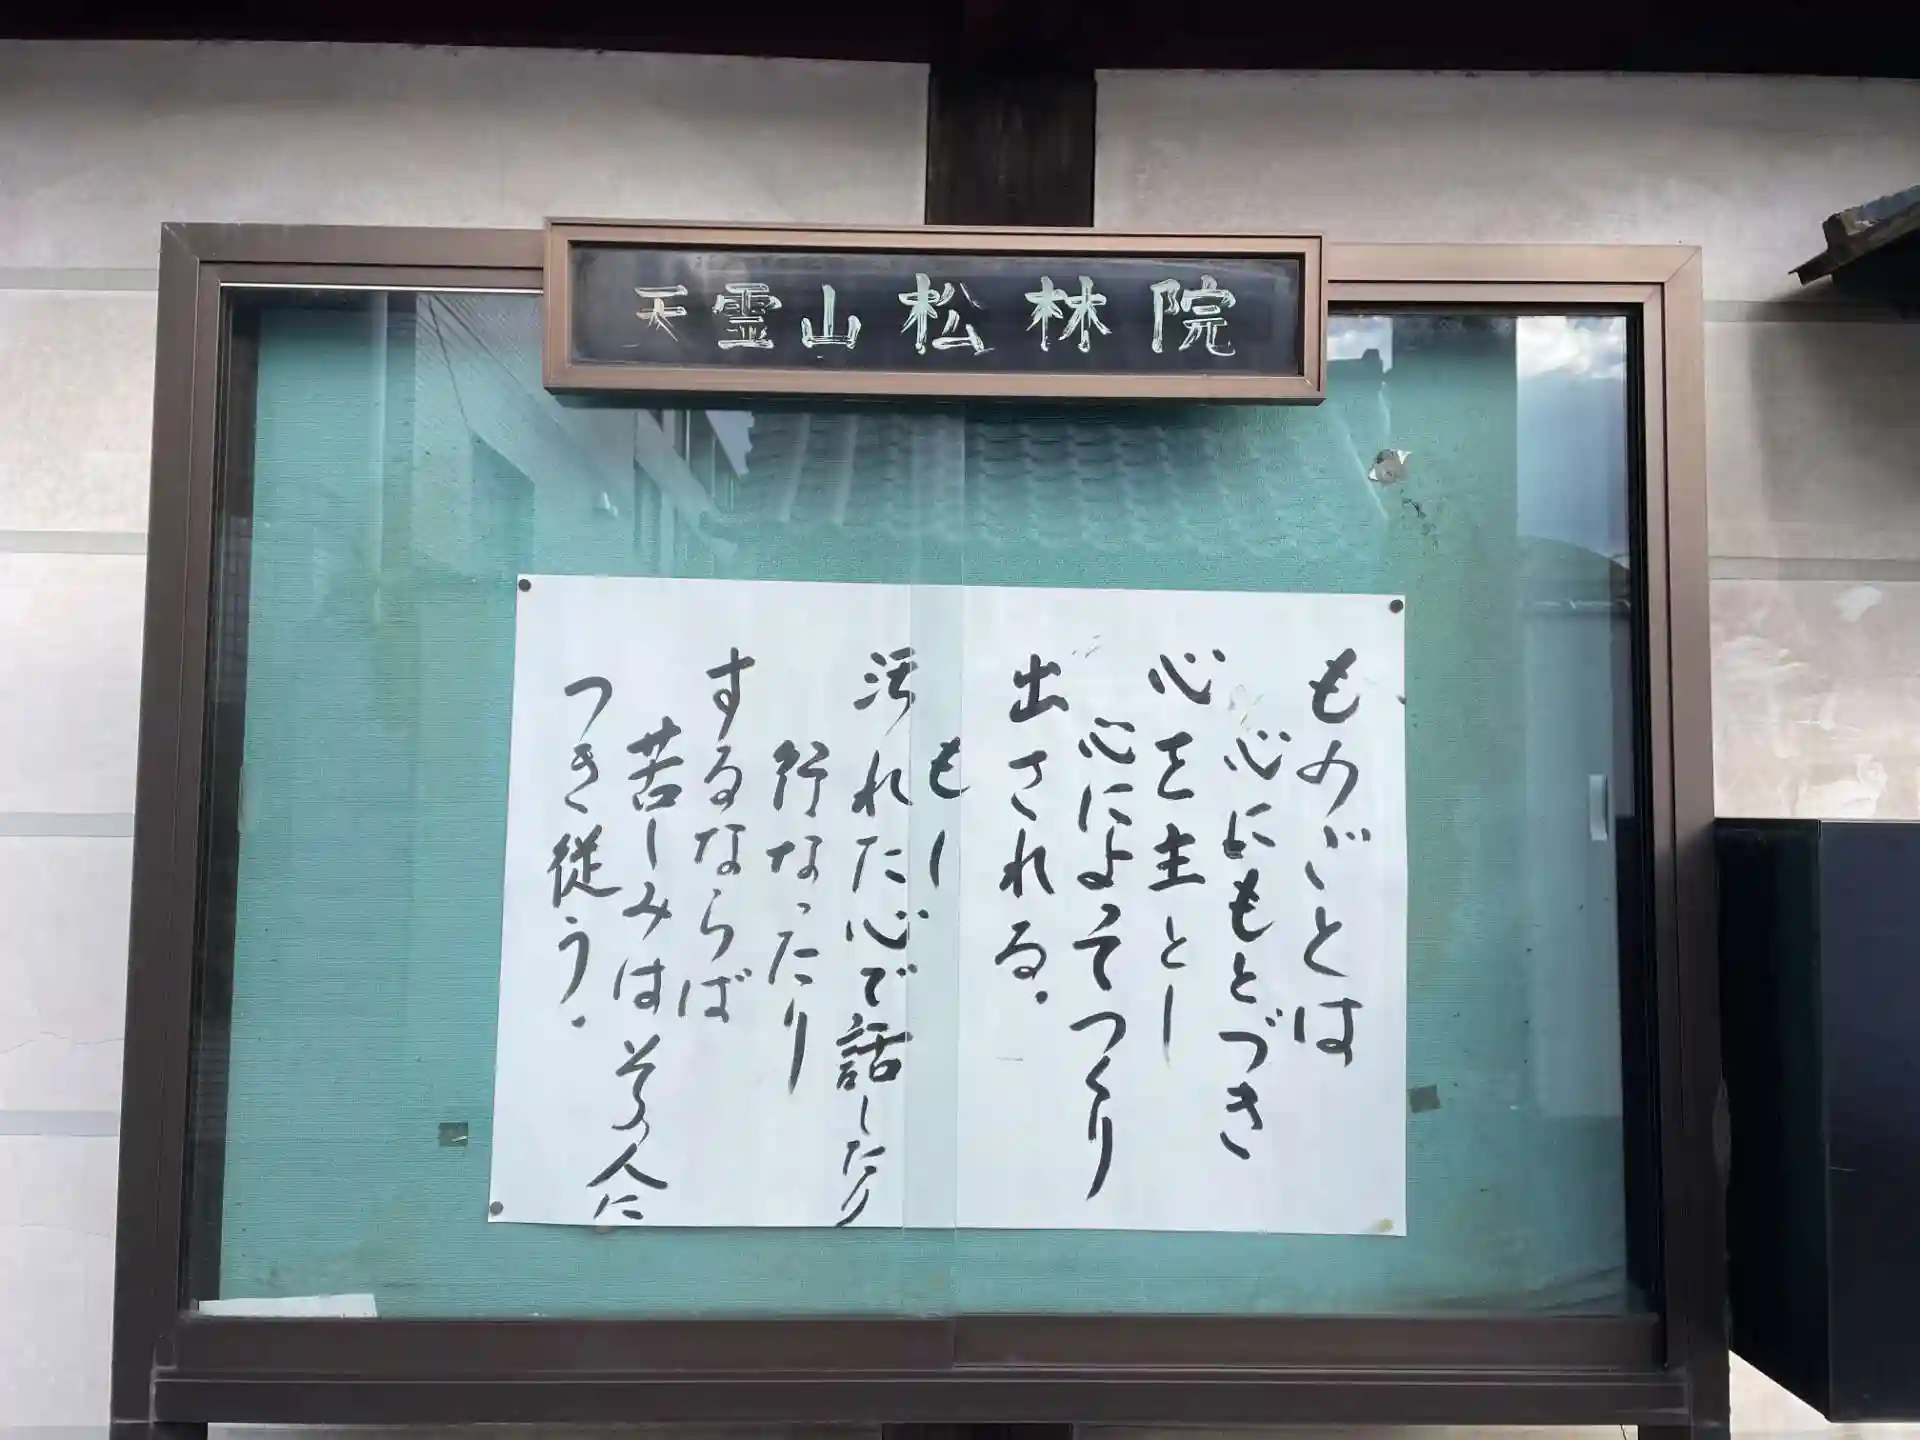 天霊山松林院
ものごとは
心にもとづき
心を主とし
心によってつくり
出される.
もし
汚れた心で話したり
行なったり
するならば
苦しみはその人に
つき従う.